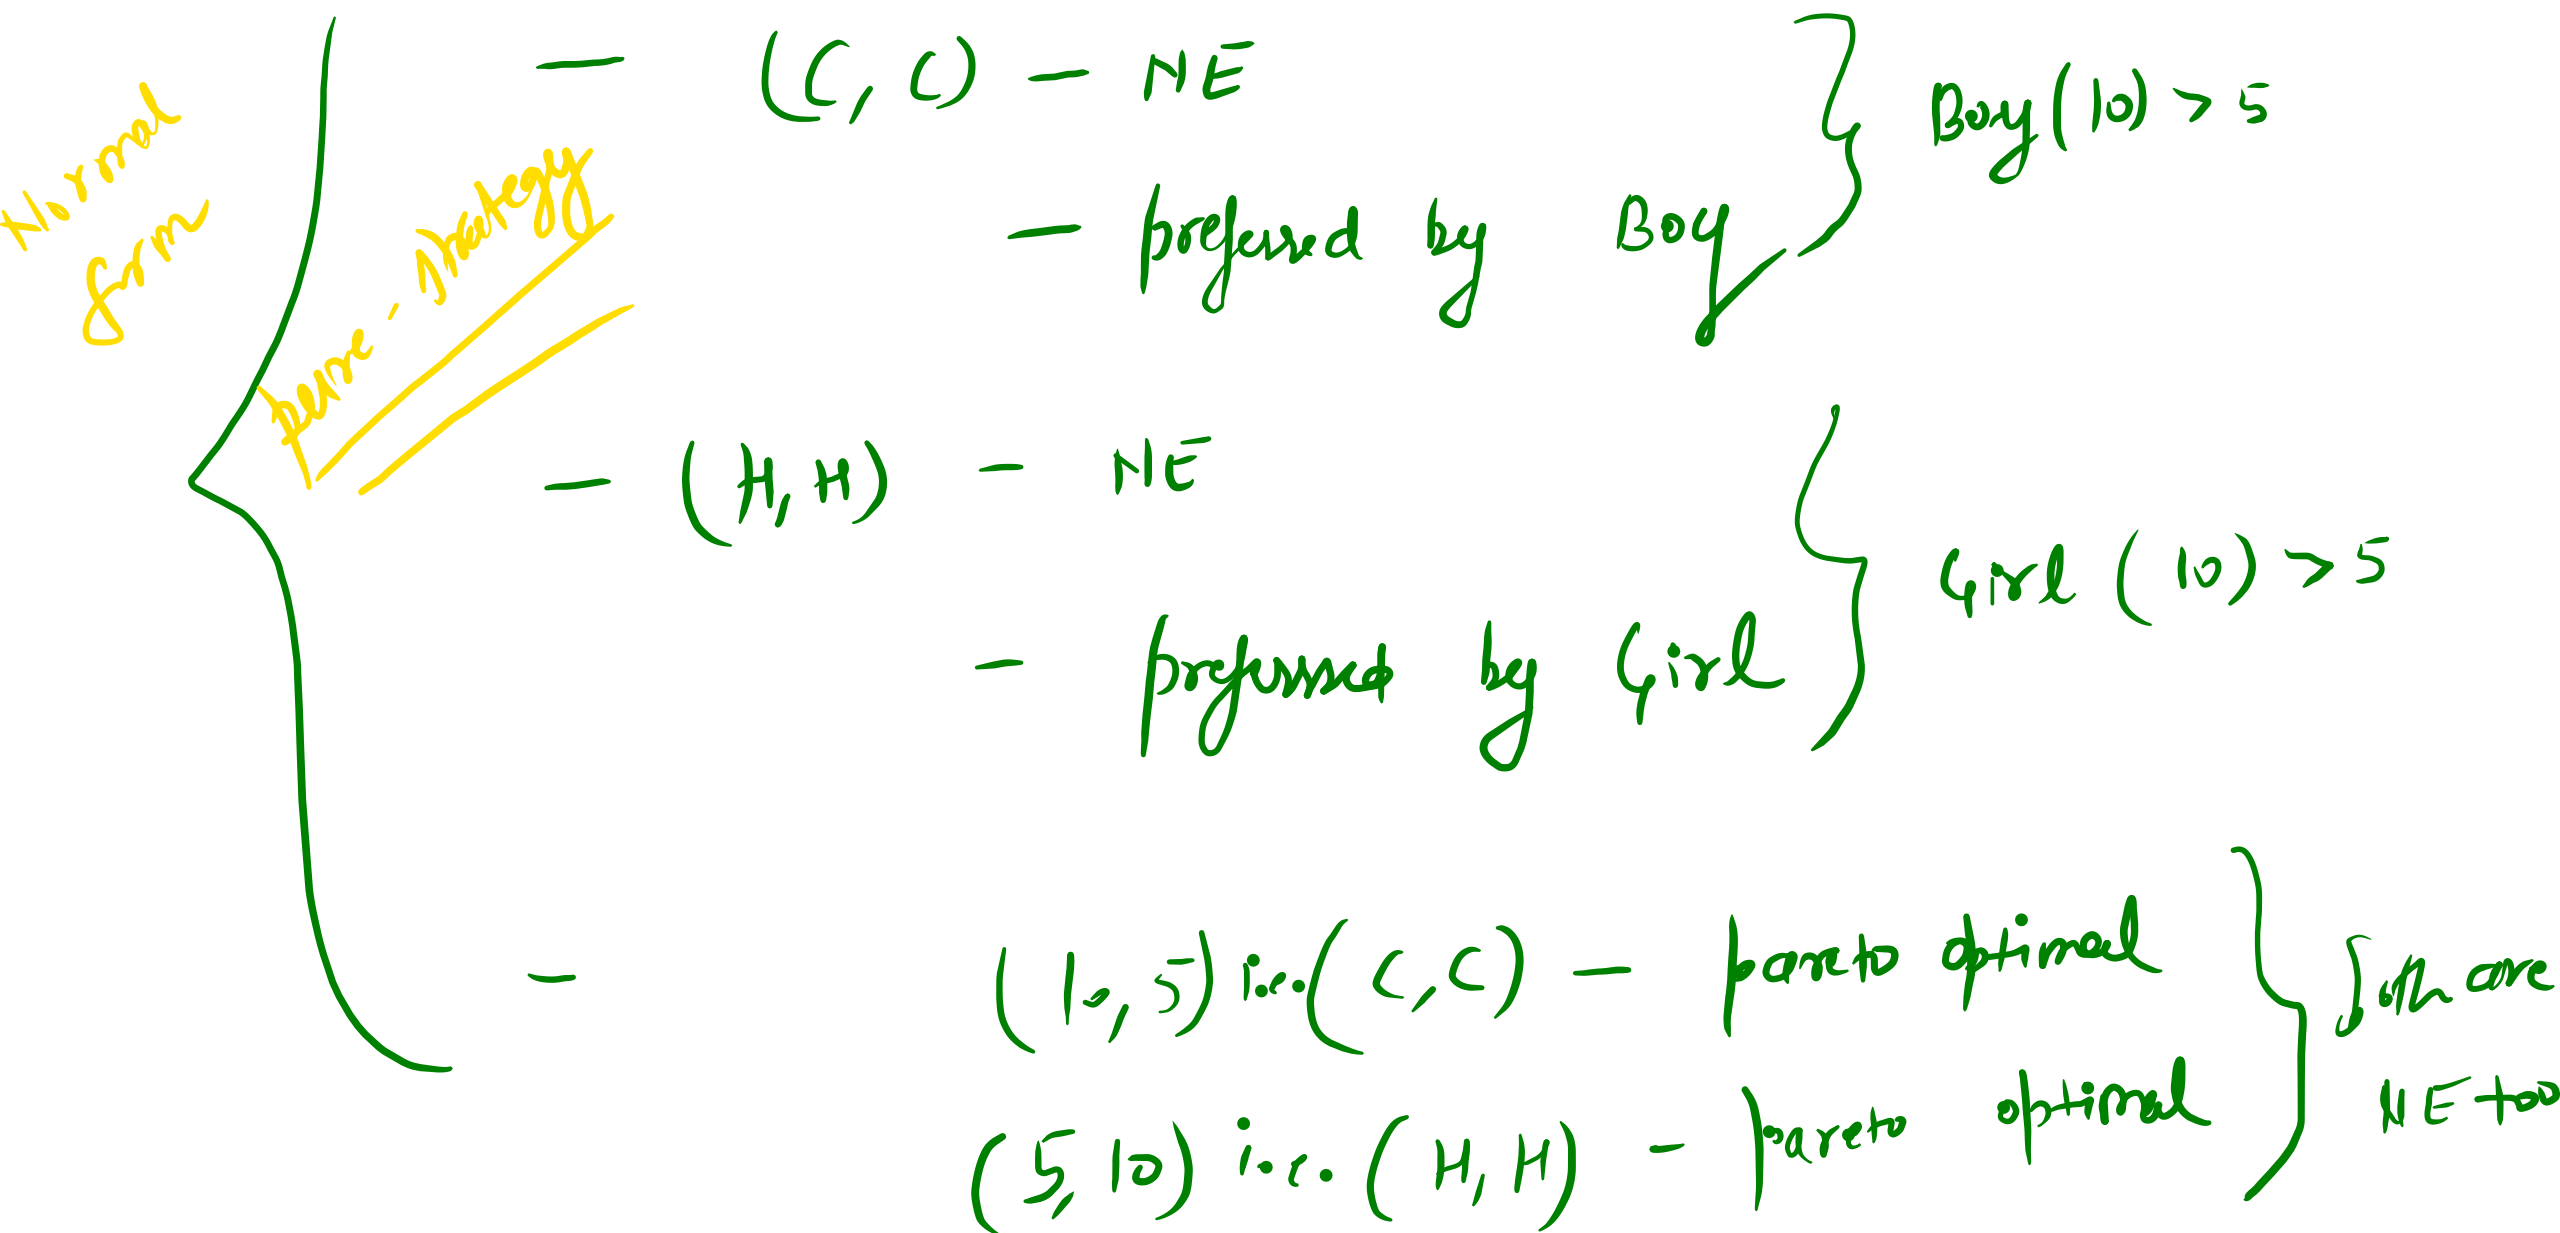 Normal form
pure-strategy
- (C, C) - NE
- preferred by Boy
Boy(10) > 5
- (H, H) - NE
- preferred by Girl
Girl (10) > 5
- (10, 5) i.e. (C, C) - pareto optimal
(5, 10) i.e. (H, H) - pareto optimal
Both are
NE too